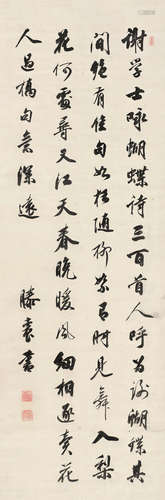 谢学士咏蝴蝶诗三百首人呼为谢蝴蝶其
间绝有佳句如狂随柳絮有时见舞入梨
花何处寻又江天春晚暖风细相逐卖花
人过桥句意深远
滕袁书